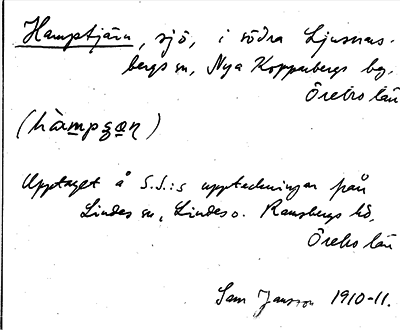 Hamptjärn, sjö, i södra Ljusnars-
bergs sn, Nya Kopparbergs bg,
Örebro län
(hàmpʂæɳ)
Upptaget å S.J.:s uppteckningar från
Lindes sn, Lindes o. Ramsbergs hd,
Örebro län
Sam Jansson 1910-11.